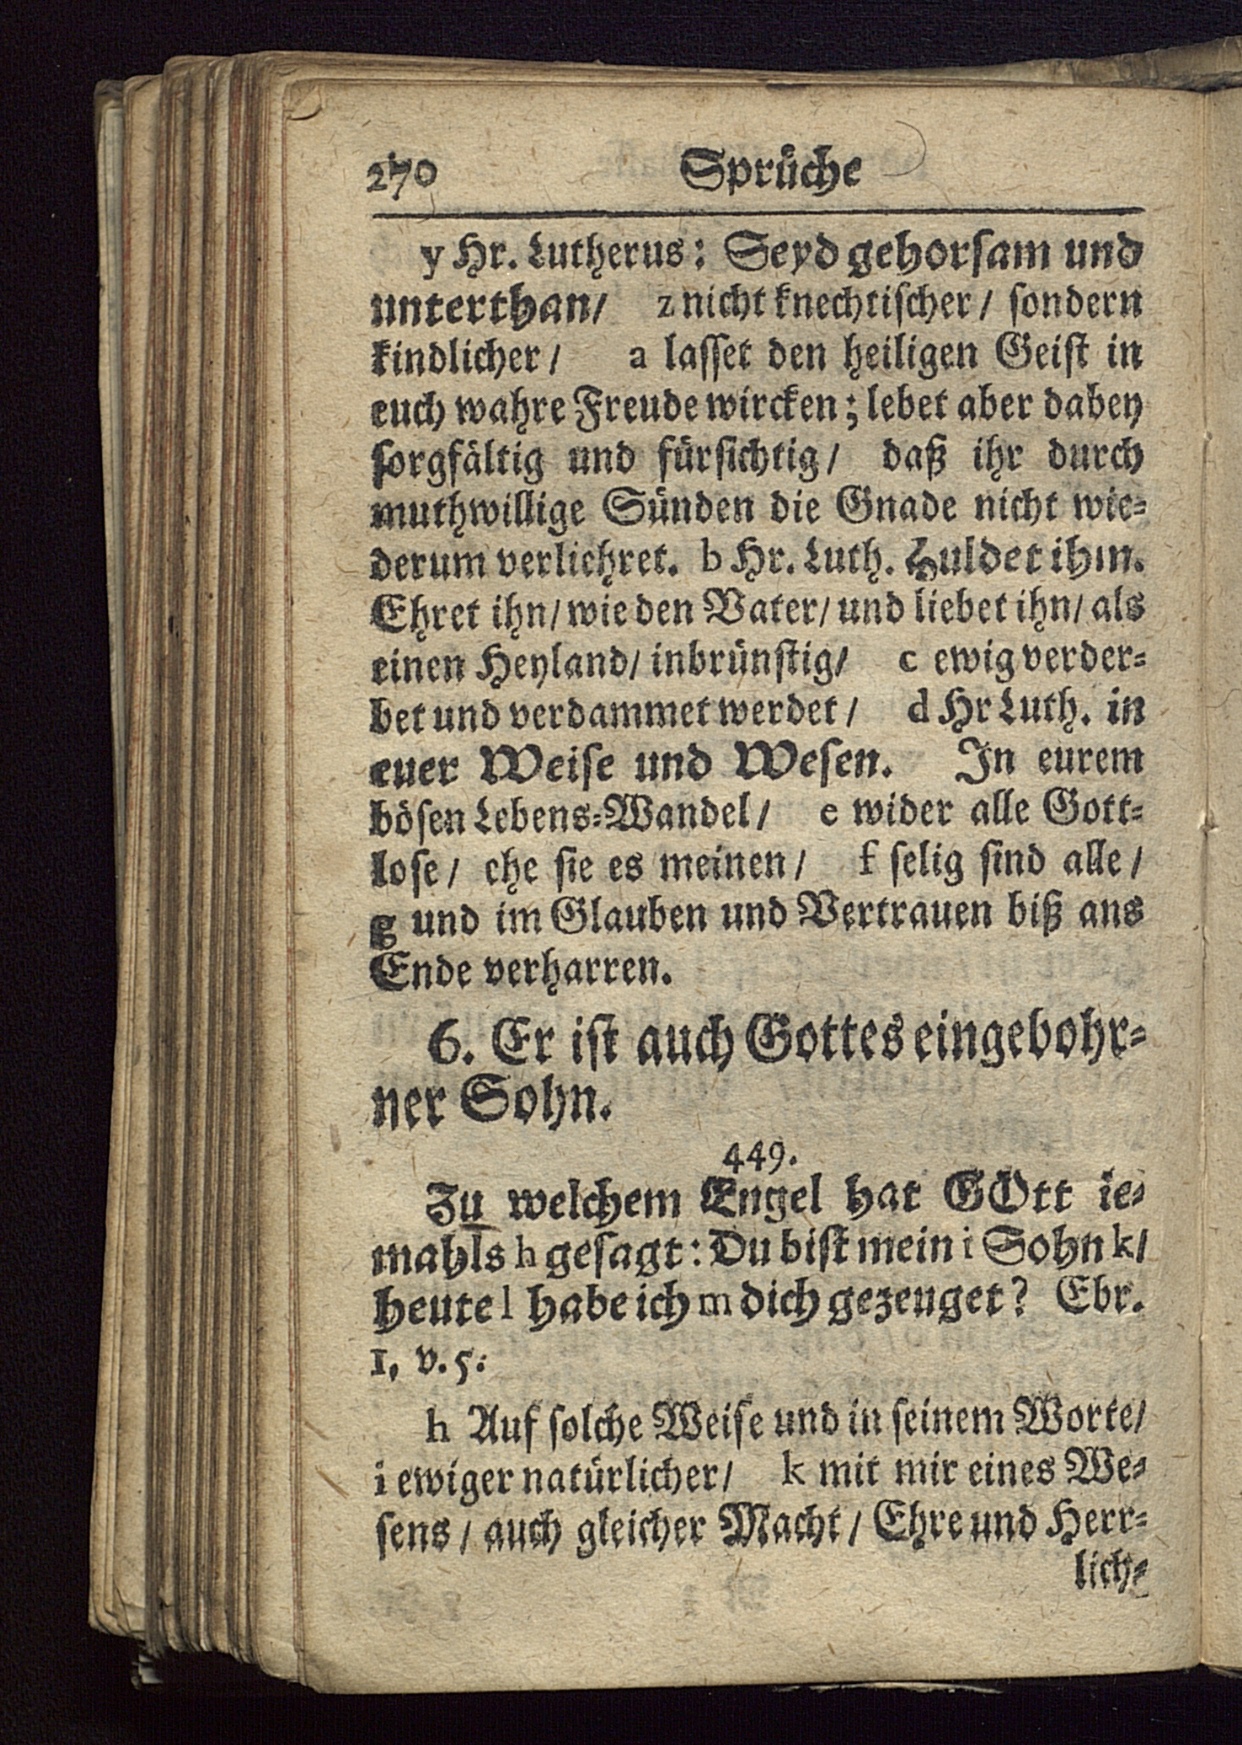 270 Sprüche
y Hr. Lutherus: Seyd gehorsam und
unterthan/ z nicht knechtischer/ sondern
kindlicher/ a lasset den heiligen Geist in
euch wahre Freude wircken; lebet aber dabey
sorgfältig und fürsichtig/ daß ihr durch
muthwillige Sünden die Gnade nicht wie-
derum verliehret. b Hr. Luth. Huldet ihm.
Ehret ihn/ wie den Vater/ und liebet ihn/ als
einen Heyland/ inbrünstig/ c ewig verder-
bet und verdammet werdet/ d Hr Luth. in
euer Weise und Wesen. In eurem
bösen Lebens-Wandel/ e wider alle Gott-
lose/ ehe sie es meinen/ f selig sind alle/
g und im Glauben und Vertrauen biß ans
Ende verharren.
6. Er ist auch Gottes eingebohr-
ner Sohn.
449.
Zu welchem Engel hat GOtt ie-
mahls h gesagt: Du bist mein i Sohn k/
heute l habe ich m dich gezeuget? Ebr.
1, v. 5.
h Auf solche Weise und in seinem Worte/
i ewiger natürlicher/ k mit mir eines We-
sens/ auch gleicher Macht/ Ehre und Herr-
lich-